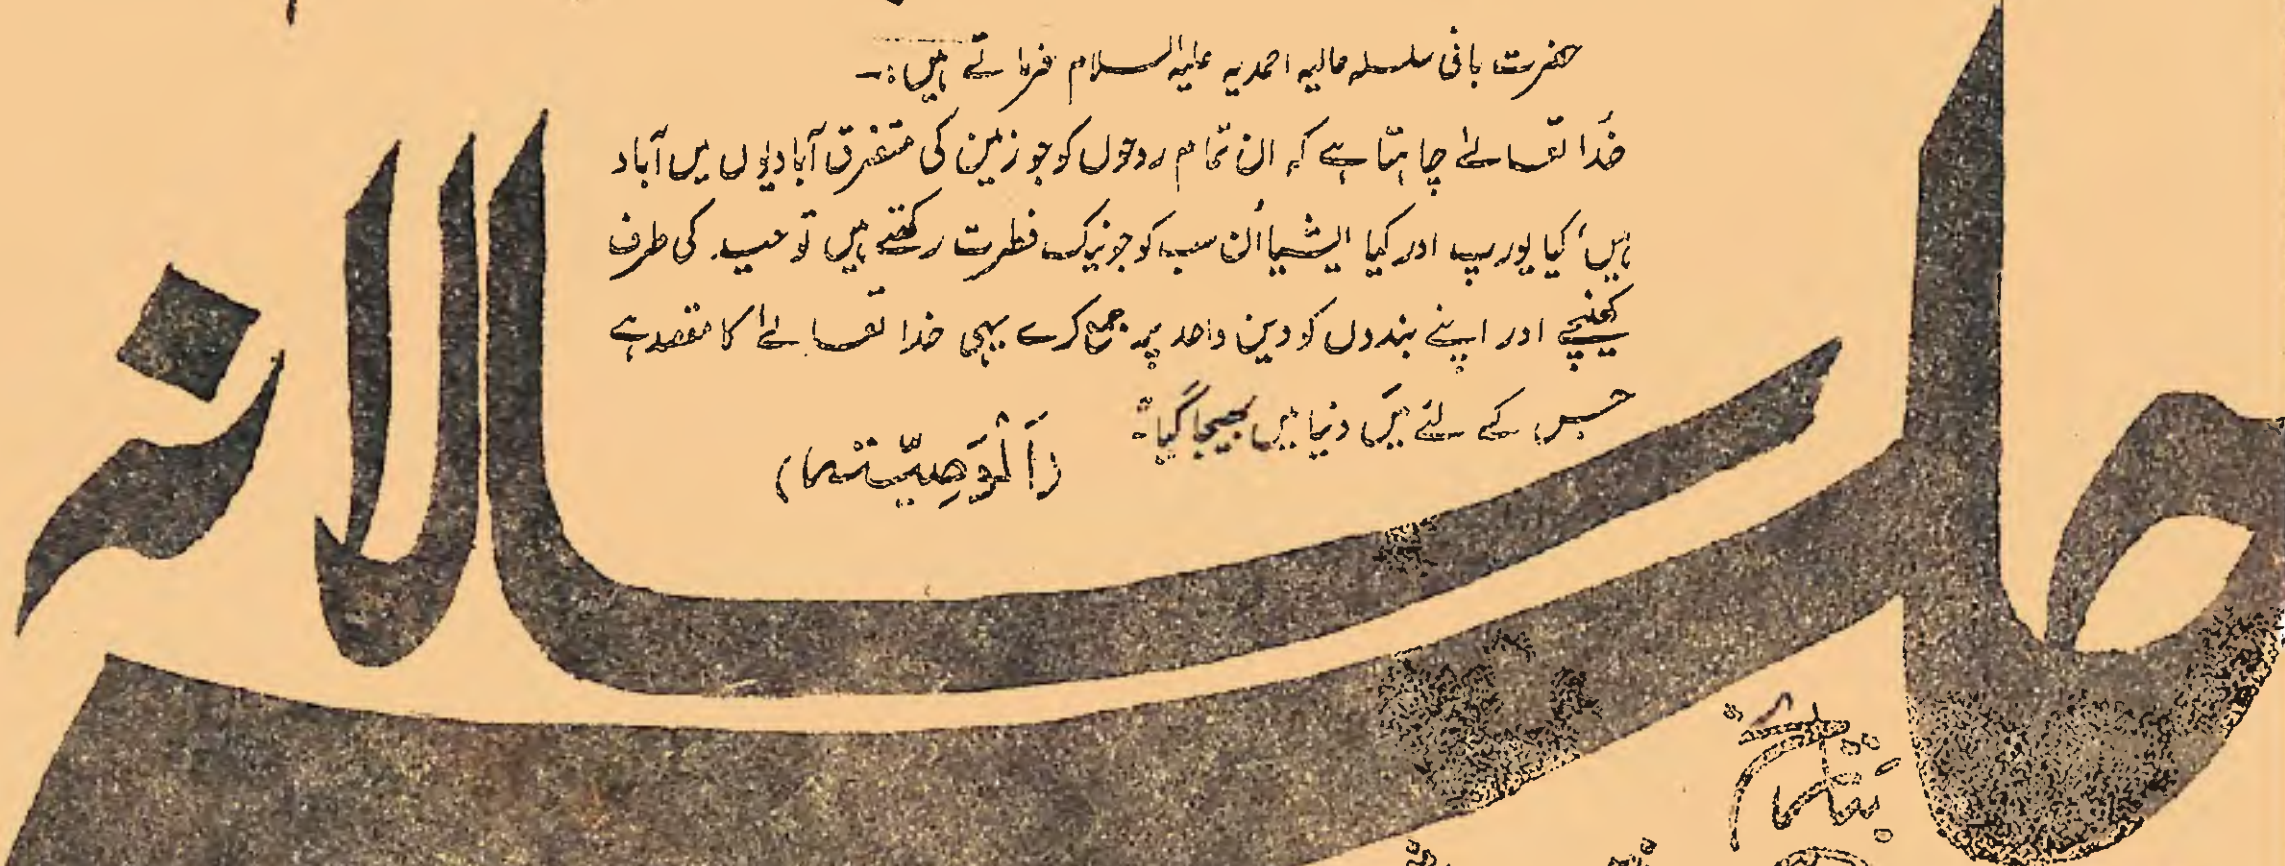 حضرت بانی سلسلہ عالیہ احمدیہ علیہ السلام فرماتے ہیں:۔
خدا تعالےٰ چاہتا ہے کہ ان تمام روحوں کو جو زمین کی متفرق آبادیوں میں آباد
ہیں، کیا یورپ اور کیا ایشیا اُن سب کو جو نیک فطرت رکھتے ہیں توحید کی طرف
کھینچے اور اپنے بندوں کو دین واحد پر جمع کرے یہی خدا تعالےٰ کا مقصد ہے
جس کے لئے میں دنیا میں بھیجا گیا۔"
(اَلْوَصِیّت)
سالانہ